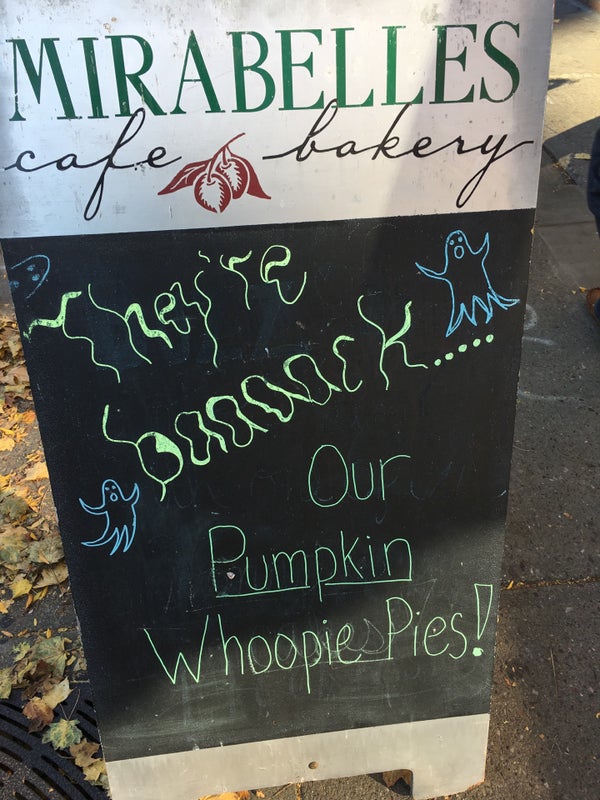 MIRABELLES
cafe bakery
They're
baaaack.....
Our
Pumpkin
Whoopie Pies!